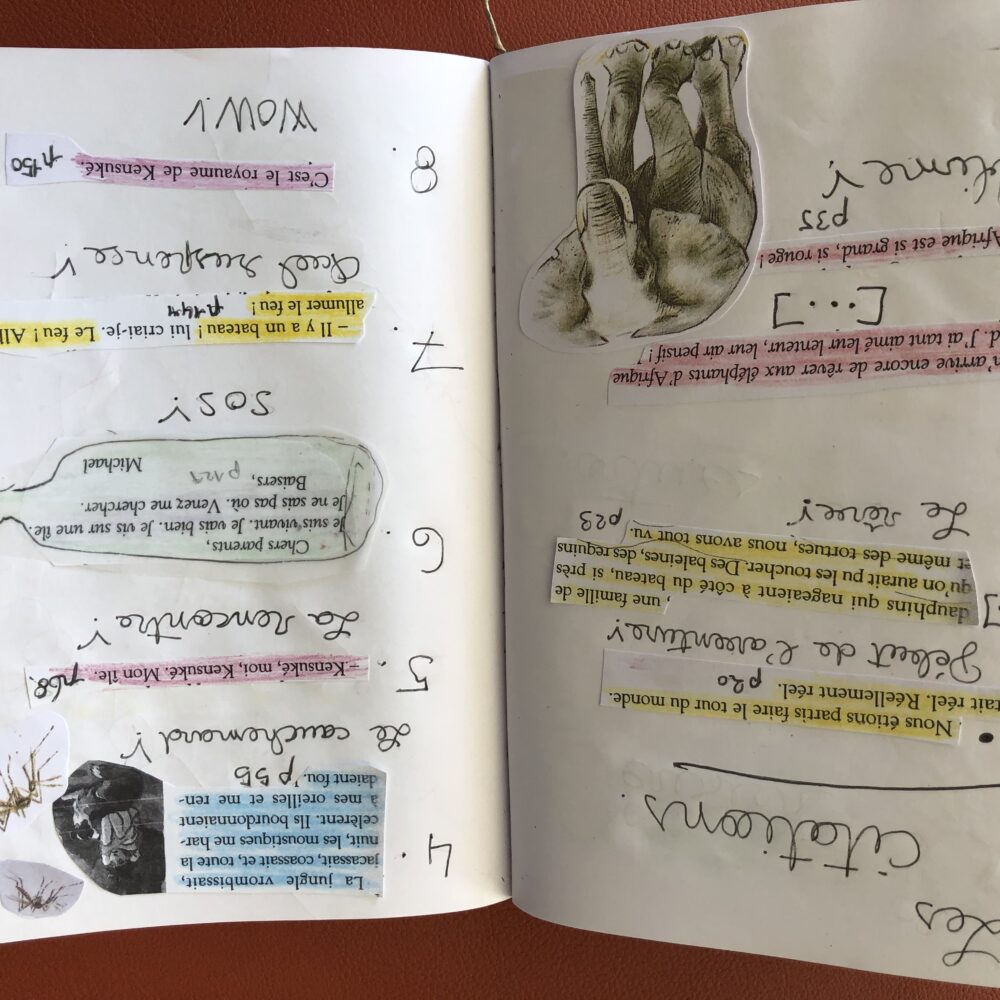 Les
citations
• Nous étions partis faire le tour du monde.
tait réel. Réellement réel. p20
Début de l'aventure!
] , une famille de
dauphins qui nageaient à côté du bateau, si près
qu'on aurait pu les toucher. Des baleines, des requins
et même des tortues, nous avons tout vu. p23
Le rêve!
'arrive encore de rêver aux éléphants d'Afrique
d. J'ai tant aimé leur lenteur, leur air pensif !
[...]
Afrique est si grand, si rouge !
p35
4.
La jungle vrombissait,
jacassait, coassait et, toute la
nuit, les moustiques me har-
celèrent. Ils bourdonnaient
à mes oreilles et me ren-
daient fou. p55
Le cauchemard!
5.
– Kensuké, moi, Kensuké. Mon île. p68.
La rencontre!
6
Chers parents,
Je suis vivant. Je vais bien. Je vis sur une île.
Je ne sais pas où. Venez me chercher.
Baisers, p127
Michael
SOS!
7.
– Il y a un bateau ! lui criai-je. Le feu ! All
allumer le feu ! p144
Quel suspence!
8.
C'est le royaume de Kensuké. p150
WOW!